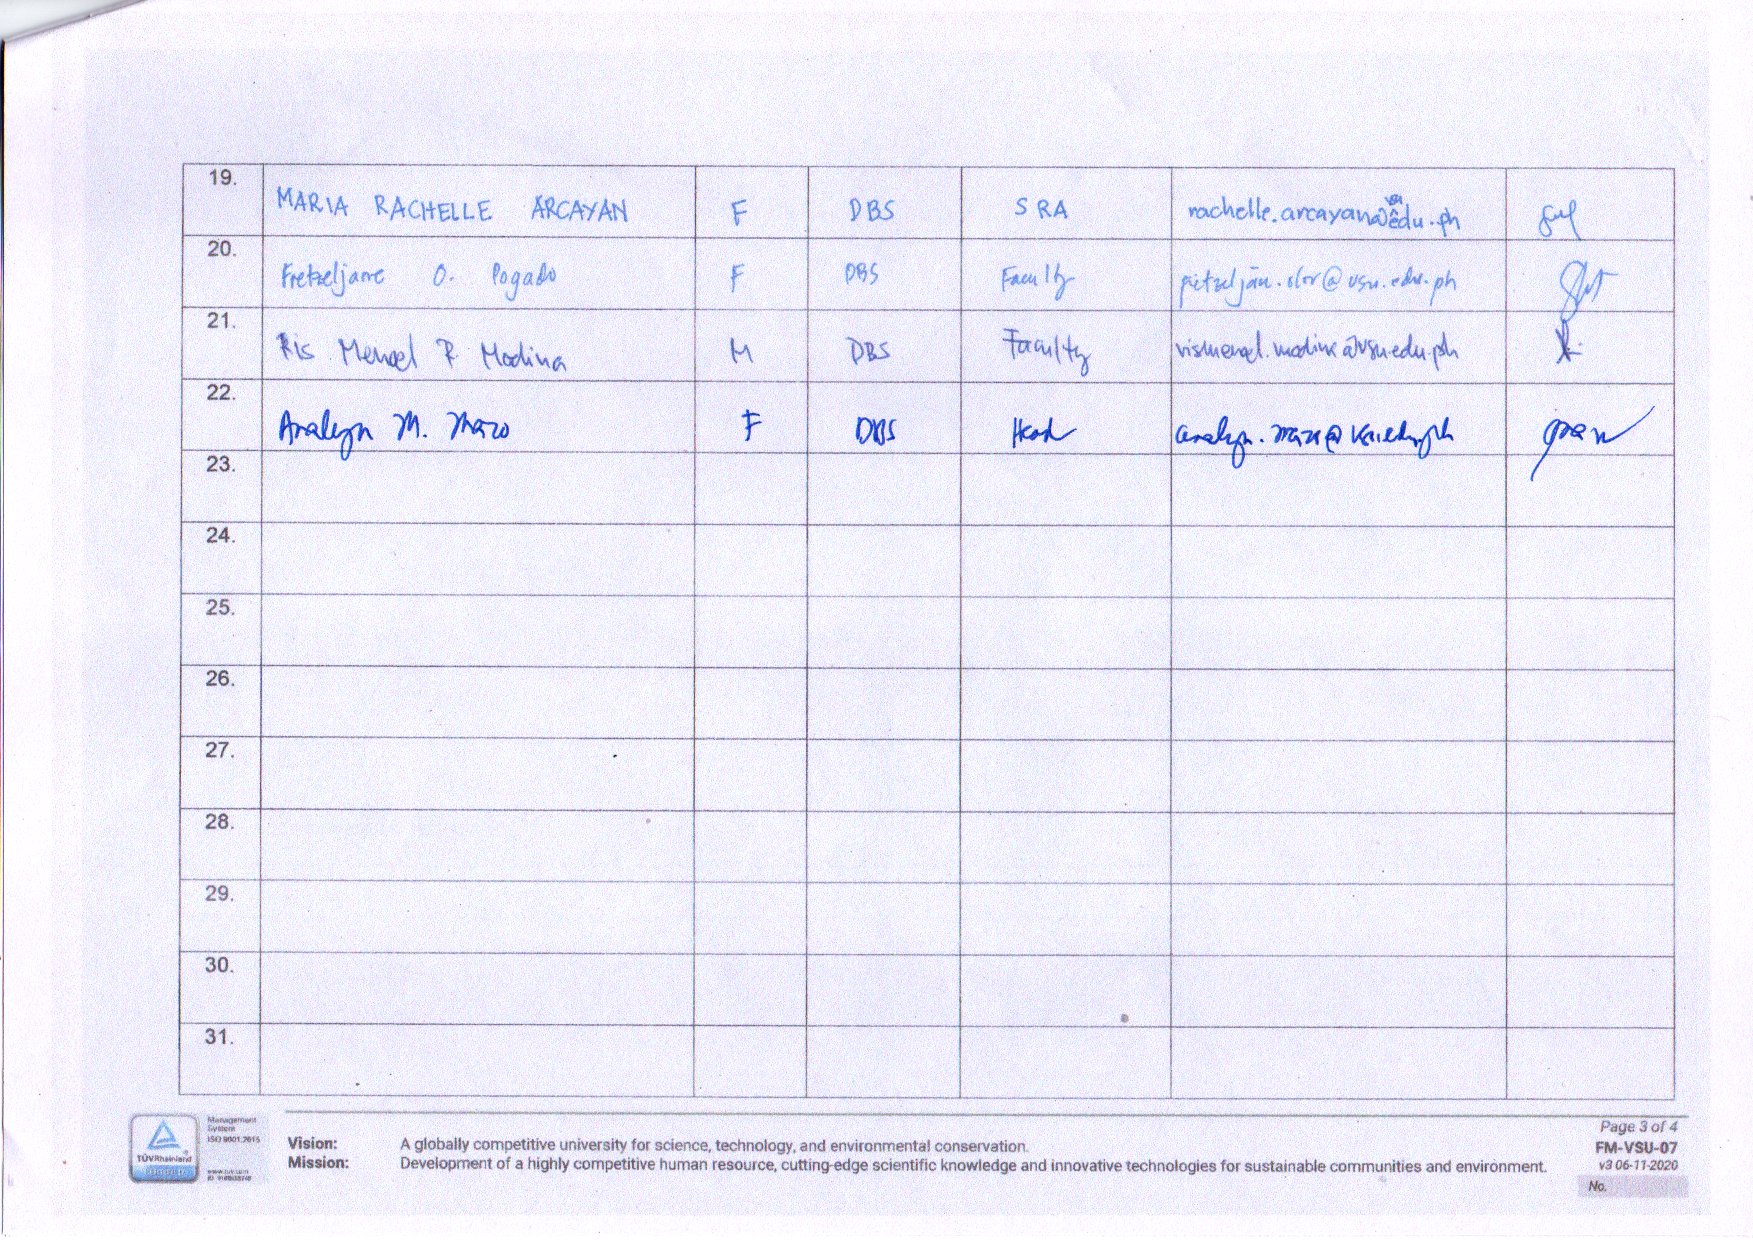 19. MARIA RACHELLE ARCAYAN F DBS SRA rachelle.arcayan@vsu.edu.ph
20. Fretzeljane O. Pogado F DBS Faculty @vsu.edu.ph
21. Ris Menoel R. Modina M DBS Faculty rismenoel.modina@vsu.edu.ph
22. Analyn M. Mazo F DBS Head analyn.mazo@vsu.edu.ph
23.
24.
25.
26.
27.
28.
29.
30.
31.
Management
System
ISO 9001:2015
TÜVRheinland
www.tuv.com
Vision: A globally competitive university for science, technology, and environmental conservation.
Mission: Development of a highly competitive human resource, cutting-edge scientific knowledge and innovative technologies for sustainable communities and environment.
Page 3 of 4
FM-VSU-07
v3 06-11-2020
No.